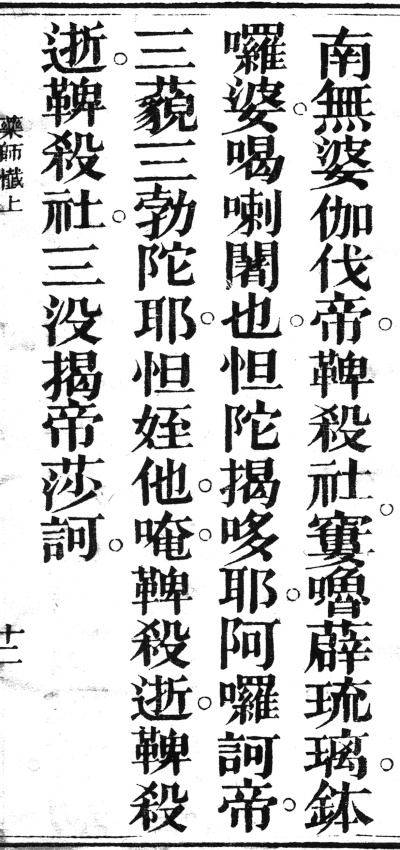 南無婆伽伐帝。鞞殺社。窶嚕薜琉璃。鉢
囉婆。喝喇闍也。怛陀揭哆耶。阿囉訶帝。
三藐三勃陀耶。怛姪他。唵。鞞殺逝。鞞殺
逝。鞞殺社。三沒揭帝莎訶。
藥師懺上
十二